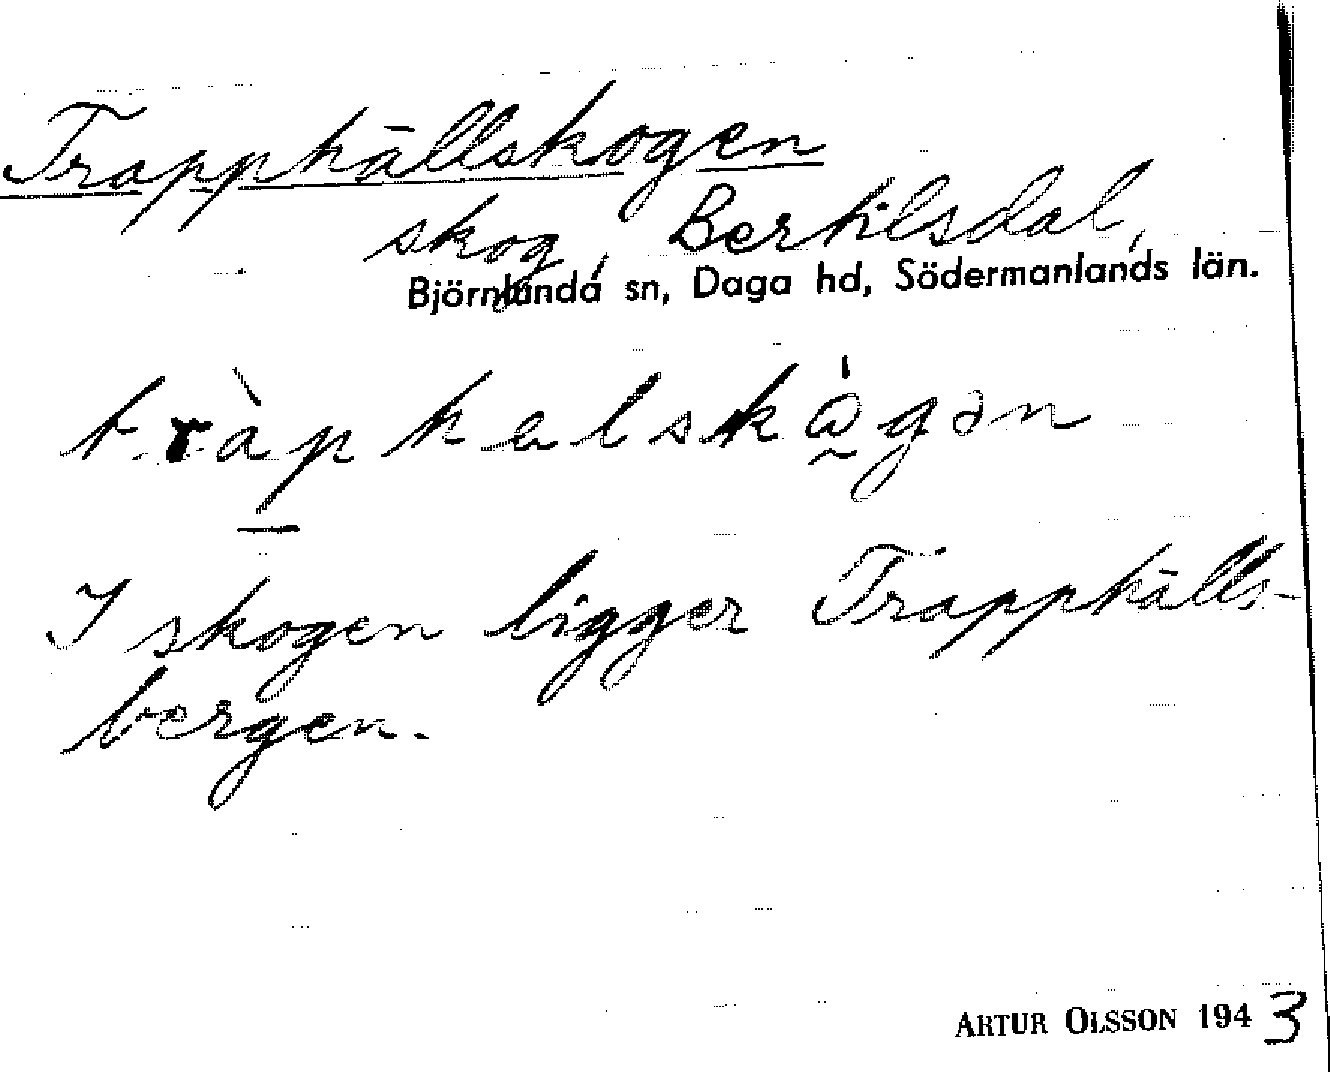 Trapphällskogen
skog, Bertilsdal,
Björnlunda sn, Daga hd, Södermanlands län.
tràphælskå̀gən
I skogen ligger Trapphälls-
bergen.
ARTUR OLSSON 1943